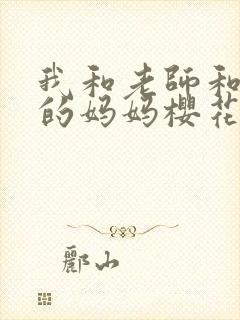 我和老師和
的妈妈櫻花
酈山